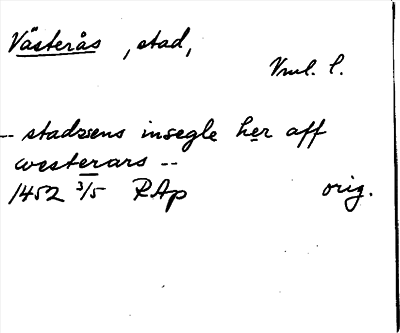 Västerås, stad,
Vml. l.
-- stadzsens insegle her aff
westerars --
1452 3/5 RAp orig.